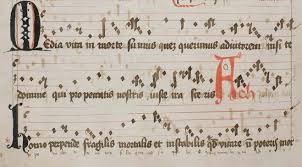 Media vita in morte sumus quez querimus adiutorem nisi te
domine qui pro peccatis nostris iuste irasceris Ach
homo perpende fragilis mortalis et instabilis vitare non poteris